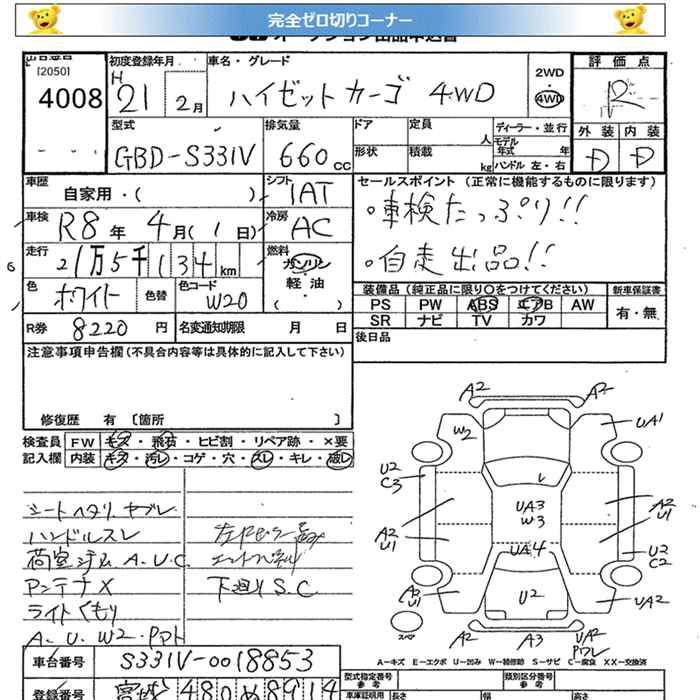 完全ゼロ切りコーナー
オークション出品申込書
[2050]
4008
初度登録年月
H 21 2月
車名・グレード
ハイゼットカーゴ 4WD
2WD
4WD
評価点
R
外装 内装
D D
型式
GBD-S331V
排気量
660cc
ドア
形状
定員
人
積載
kg
ディーラー・並行
モデル年式 年
ハンドル 左・右
車歴
自家用・( )
シフト
IAT
セールスポイント (正常に機能するものに限ります)
。車検たっぷり!!
。自走出品!!
車検
R8年 4月( 1日)
冷房
AC
走行
21万5千134km
燃料
ガソリン
軽油
( )
色
ホワイト
色替
色コード
W20
装備品 (純正品に限り〇をつけてください)
PS PW ABS エアB AW
SR ナビ TV カワ
新車保証書
有・無
R券 8220円
名変通知期限 月 日
後日品
注意事項申告欄(不具合内容等は具体的に記入して下さい)
修復歴 有 〔箇所 〕
検査員 FW キズ・飛石・ヒビ割・リペア跡・×要
記入欄 内装 キズ・汚レ・コゲ・穴・スレ・キレ・破レ
シートヘタリ ヤブレ
ハンドルスレ
荷室 A.U.C
アンテナX
ライトくもり
A.U.W2.
下廻りS.C
A2
A2
W2
UA1
U2
C3
UA3
W3
A2
U1
A2
U1
UA4
U2
C2
A2
U1
U2
UA2
スペア
A2
A3
UA2
Pワレ
A-キズ E-エクボ U-凹み W-補修跡 S-サビ C-腐食 XX-交換済
車台番号
S331V-0018853
型式指定番号
参考
類別区分番号
参考
登録番号
宮城 480 め 8914
車庫証明用
長さ
幅
高さ